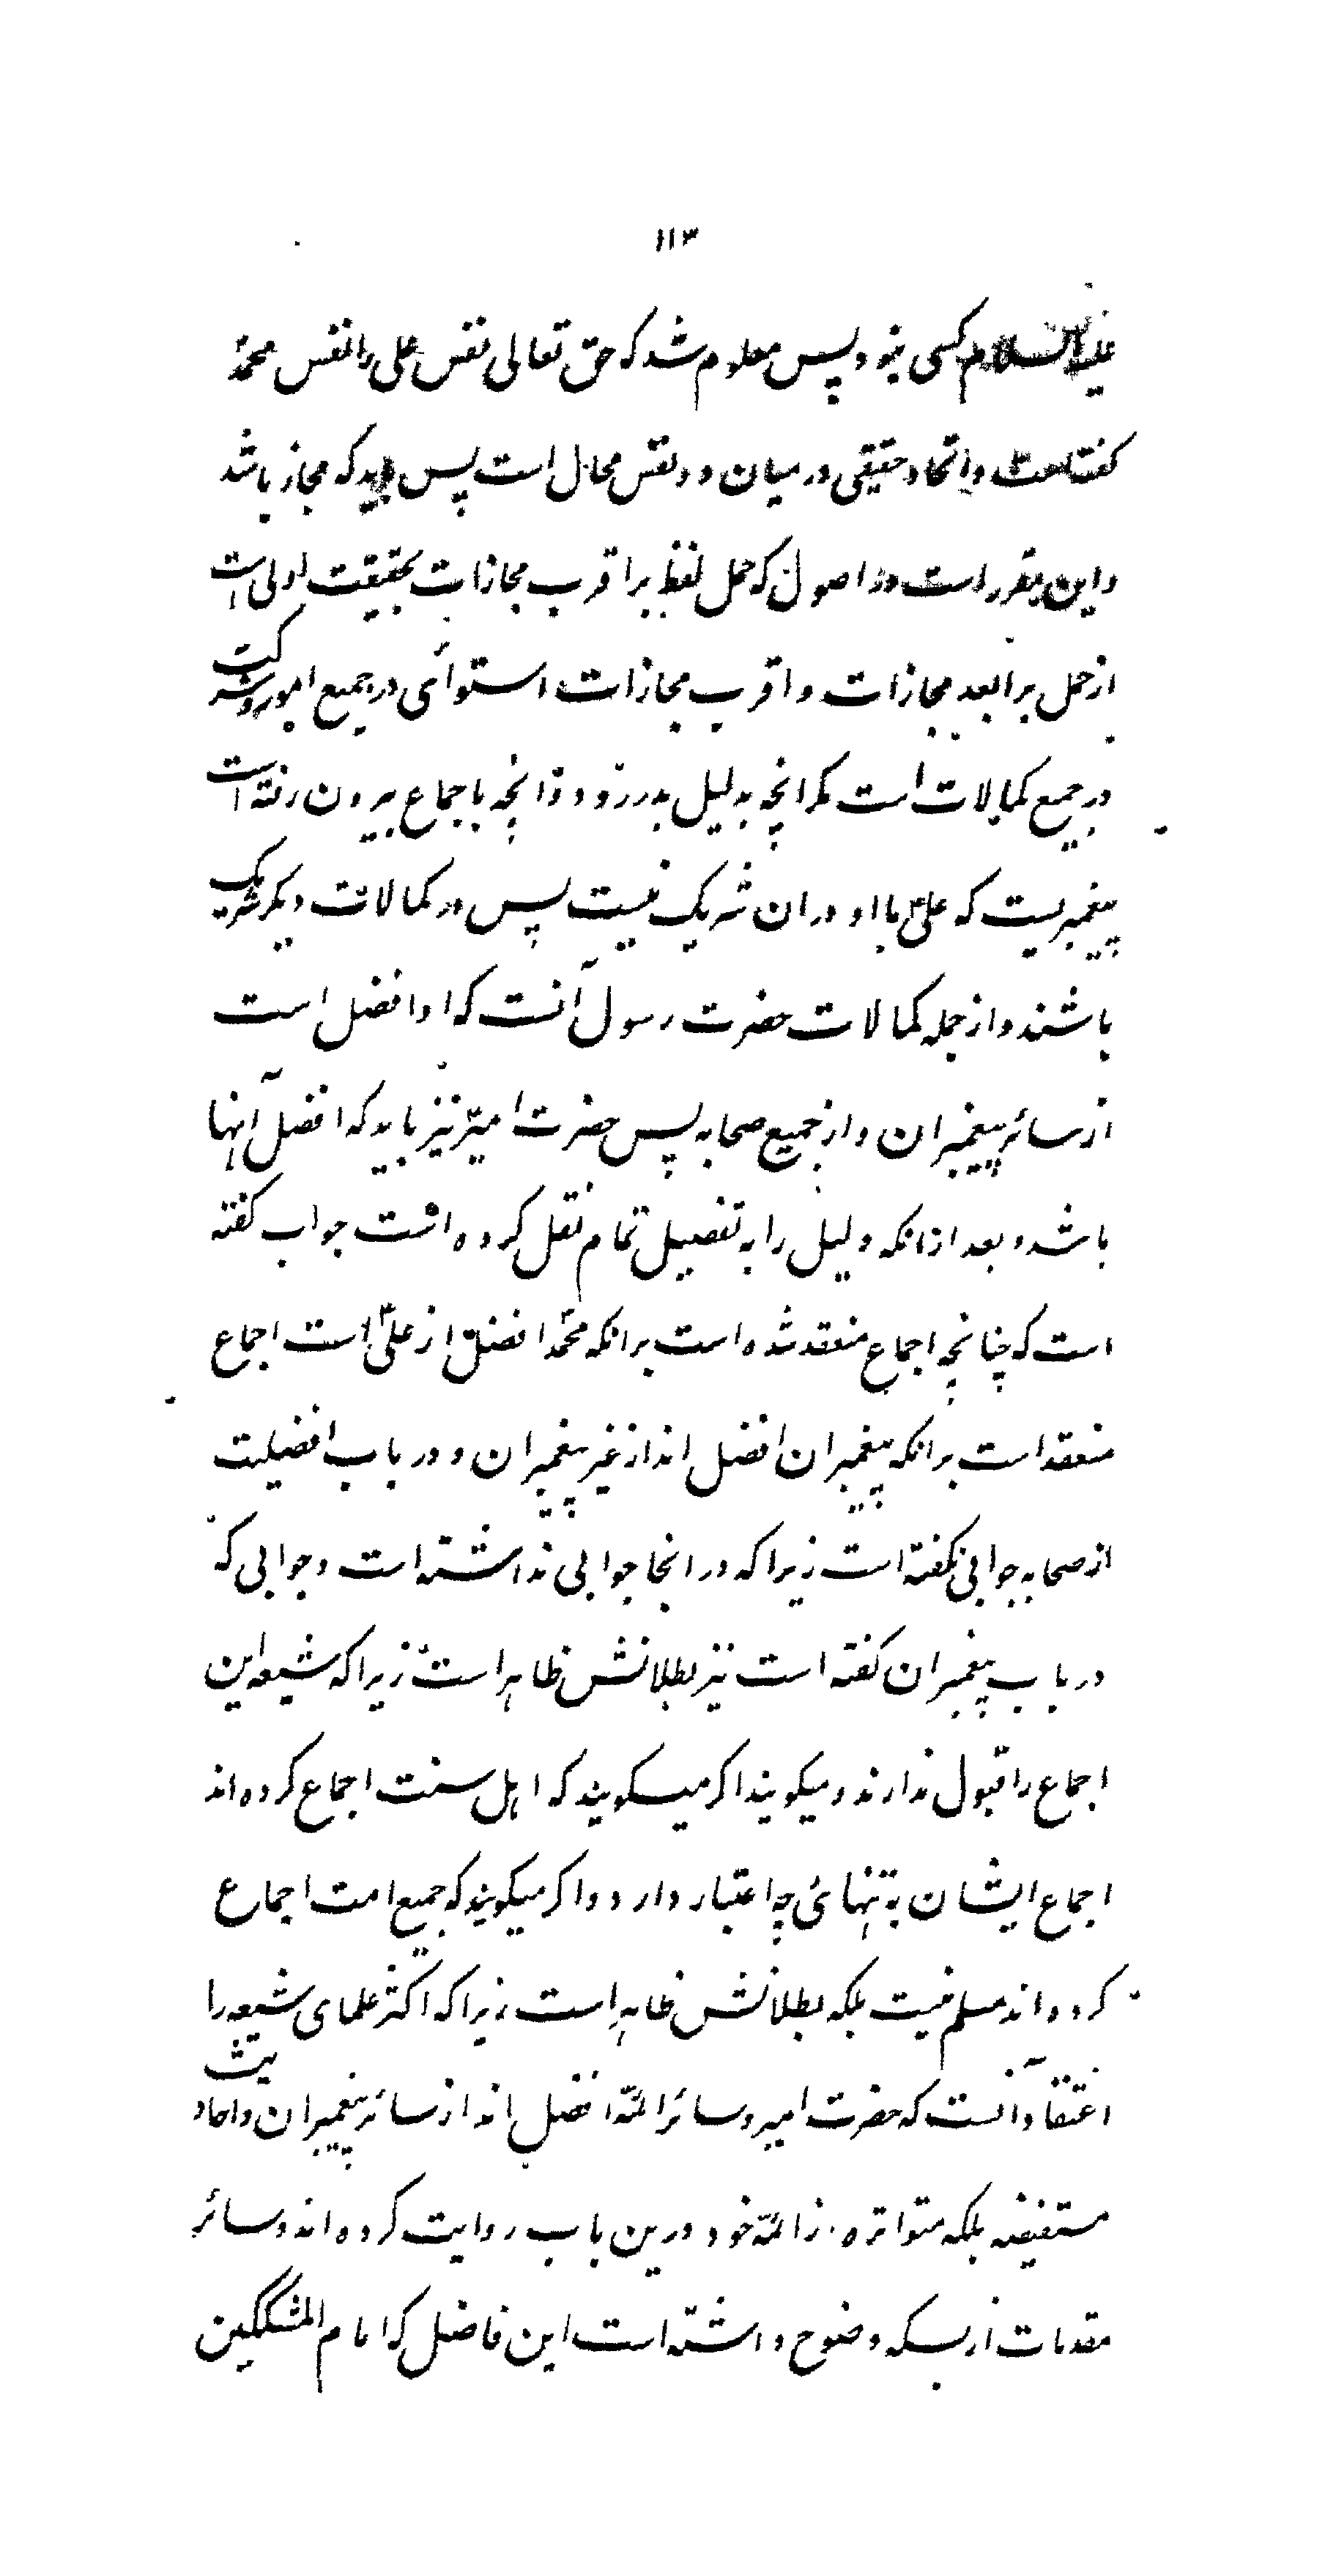 ۱۱۳
علیه السلام کسی نبود پس معلوم شد که حق تعالی نفس علی را نفس محمد
گفته است و اتحاد حقیقی در میان دو نفس محال است پس باید که مجاز باشد
و این مقرر است در اصول که حمل لفظ بر اقرب مجازات بحقیقت اولی است
از حمل بر ابعد مجازات و اقرب مجازات استوائی در جمیع امور و شرکت
در جمیع کمالات است مگر انچه به دلیل بدر رود و انچه باجماع بیرون رفته است
پیغمبریست که علی با او در ان شریک نیست پس در کمالات دیگر شریک
باشند و از جمله کمالات حضرت رسول آنست که او افضل است
از سائر پیغمبران و از جمیع صحابه پس حضرت امیر نیز باید که افضل آنها
باشد و بعد ازانکه دلیل را به تفصیل تمام نقل کرده است جواب گفته
است که چنانچه اجماع منعقد شده است برانکه محمد افضل از علی است اجماع
منعقد است برانکه پیغمبران افضل اند از غیر پیغمبران و در باب افضیلت
از صحابه جوابی نگفته است زیرا که در انجا جوابی نداشته است و جوابی که
در باب پیغمبران گفته است نیز بطلانش ظاهر است زیرا که شیعه این
اجماع را قبول ندارند و میگویند اگر میگویند که اهل سنت اجماع کرده اند
اجماع ایشان به تنهائی چه اعتبار دارد و اگر میگویند که جمیع امت اجماع
کرده اند مسلم نیست بلکه بطلانش ظاهر است زیرا که اکثر علمای شیعه را
اعتقاد آنست که حضرت امیر و سائر ائمه افضل اند از سائر پیغمبران و احادیث
مستفیضه بلکه متواتره از ائمه خود درین باب روایت کرده اند و سائر
مقدمات از بسکه وضوح داشته است این فاضل که امام المشککین